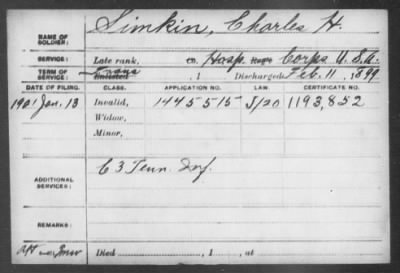 NAME OF SOLDIER: Simkin, Charles H.
SERVICE: Late rank, Co. Hosp. Reg't Corps U.S.A.
TERM OF SERVICE: Enlisted , 1 Discharged Feb. 11, 1899
DATE OF FILING. CLASS. APPLICATION NO. LAW. CERTIFICATE NO.
1901 Jan. 13 Invalid, 1445515 J/20 1193,852
Widow,
Minor,
ADDITIONAL SERVICES: C 3 Tenn. Inf.
REMARKS:
Died , 1 , at